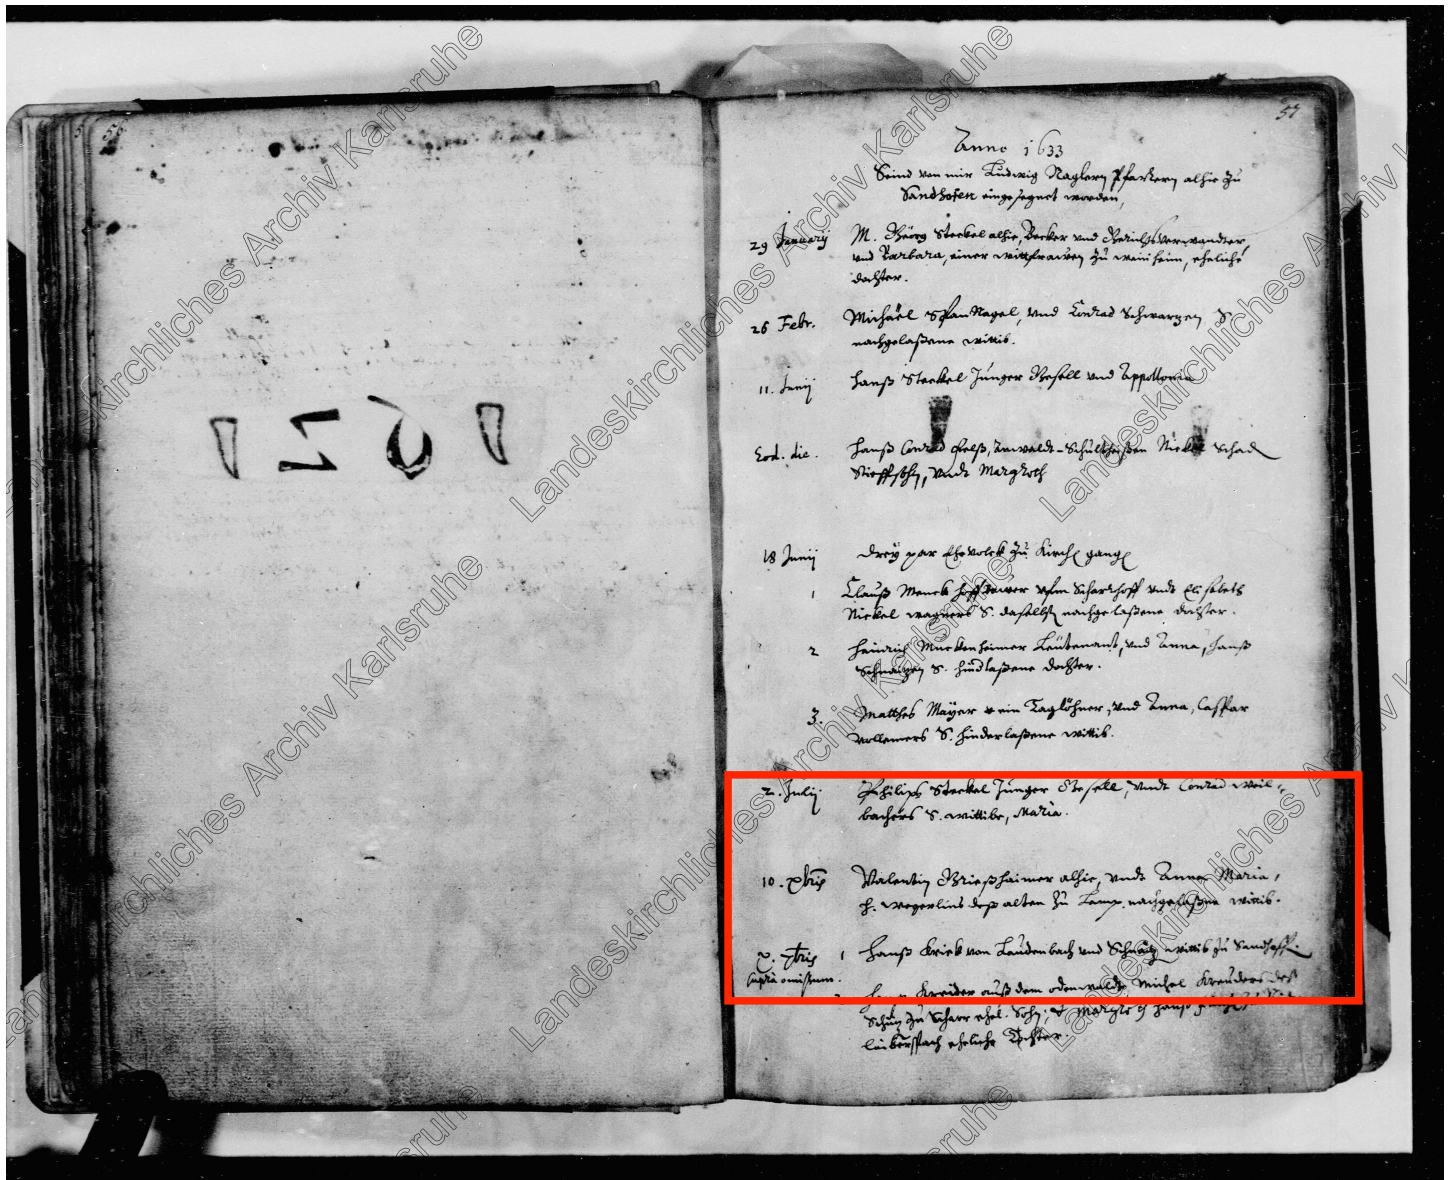 57
Anno 1633
Seind von mir Ludwig Naglern Pfarrern alhie zu
Sandhofen eingesegnet worden,
29 January M. Georg Steckel alhie, Becker und Gerichtsverwandter,
und Barbara, einer wittfrawen zu weinheim, eheliche
dochter.
26 Febr. Michäel Nagel, und Conrad Schwarzen S.
nachgelaßene wittib.
11. Junij Hanß Steckel Junger Gesell und Appollonia
Eod. die. Hanß Conrad Felß, Anwaldt-Schultheißen Nickel Schad
Stieffsohn, undt Margreth
18 Junij Drey par Ehevolck zu Kirch gang
1 Clauß Menck Hoffbawer ufm Scharhoff undt Elisabeth
Nickel wagners S. daselbst nachgelaßene dochter.
2 Heinrich Muckenheimer Leutenant, und Anna, Hanß
S. hindlaßene dochter.
3. Matthes Mayer ein Taglöhner, und Anna, Caspar
Vollemers S. hinderlaßene wittib.
2. Julij Philips Steckel Junger Gesell, undt Conrad Weil-
bachers S. wittibe, Maria.
10. Xbris Valentin Grießhaimer alhie, undt Anna Maria,
H. wegerlins deß alten zu Camp. nachgelaßne wittib.
Xbris 1 Hanß Krick von Laudenbach und wittib zu Sandhoff.
supra omissum.
2 Kreider auß dem odenwaldt, Michel Kreuders deß
zu Scharr ehel. Sohn; Hanß
eheliche Tochter.
1620
Landeskirchliches Archiv Karlsruhe